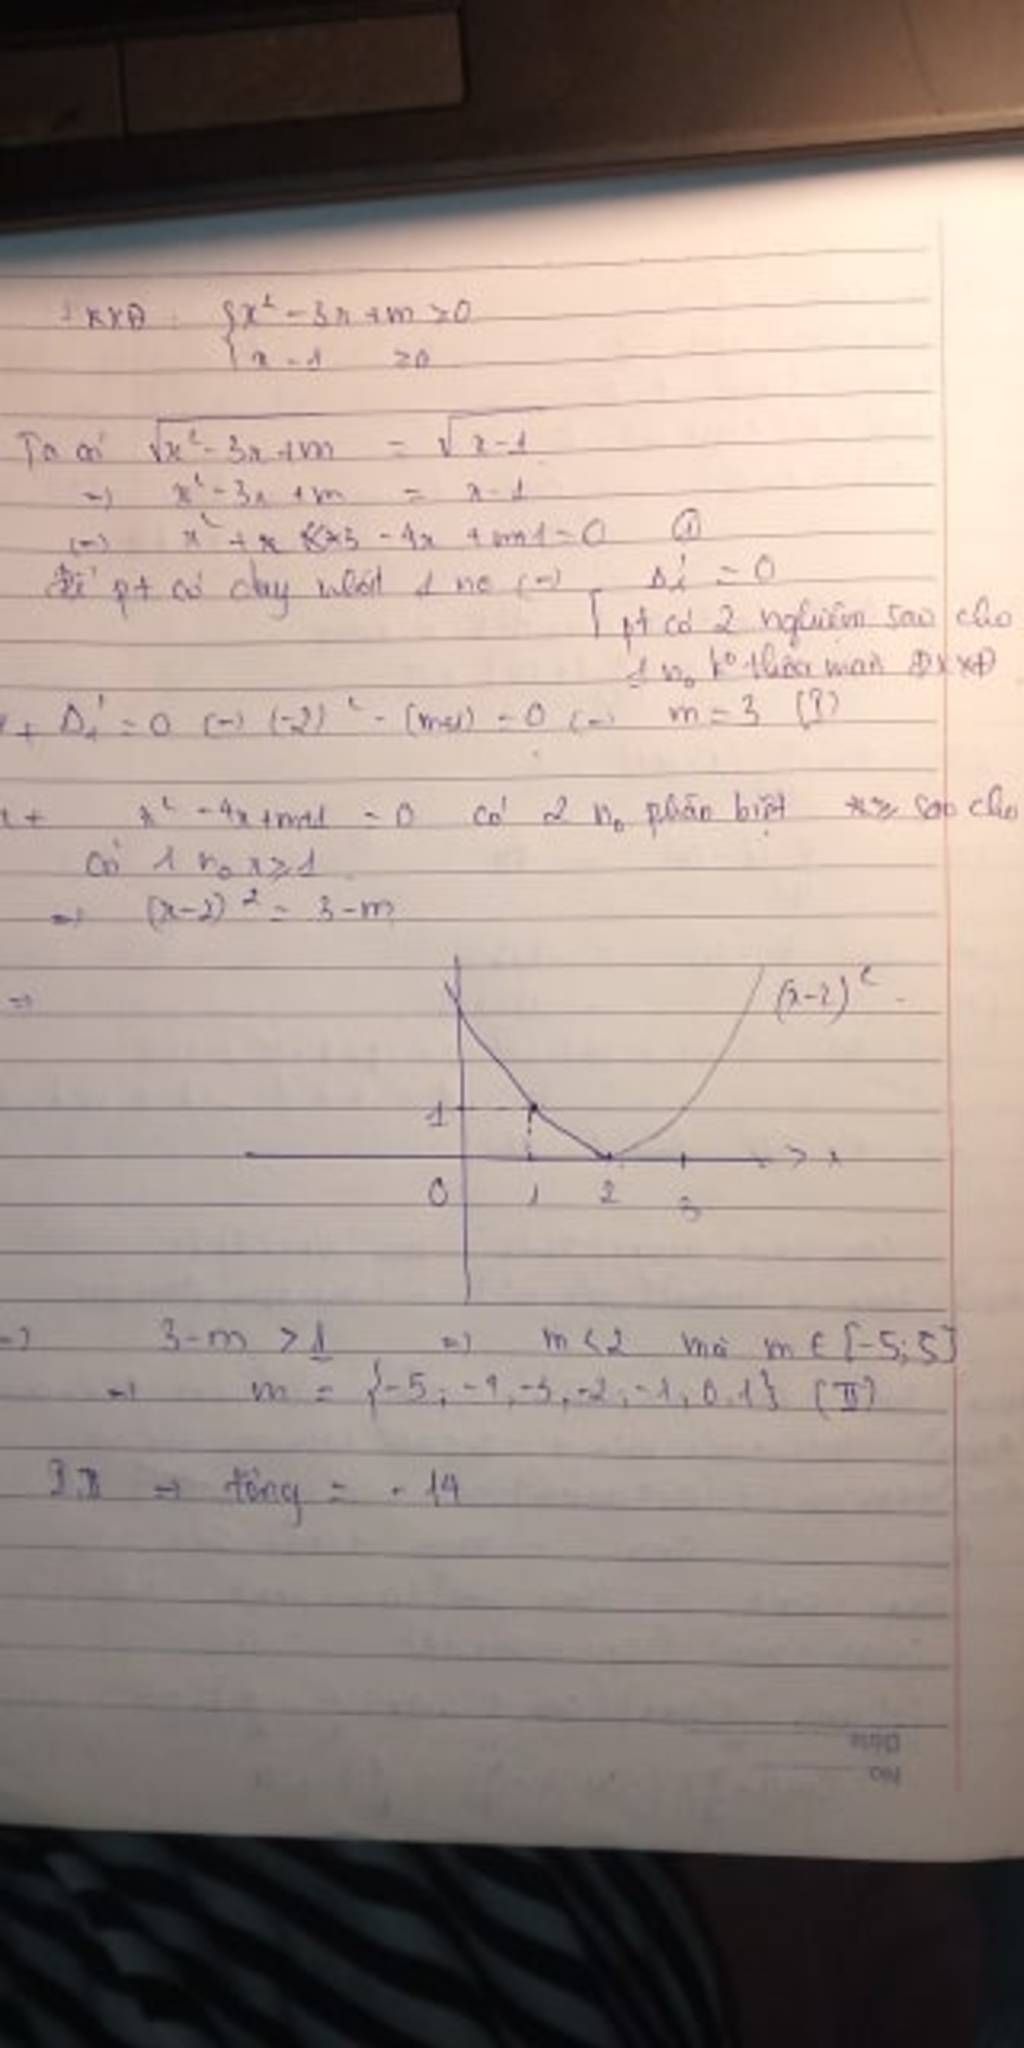 ĐKXĐ : { x² - 3x + m ≥ 0
x - 1 ≥ 0
Ta có √x² - 3x + m = √x - 1
=> x² - 3x + m = x - 1
(=) x² - 4x + m+1 = 0 ①
Để pt có duy nhất 1 no (=) [ Δ₁' = 0
pt có 2 nghiệm sao cho
1 no ko thỏa mãn ĐKXĐ
+ Δ₁' = 0 (=) (-2)² - (m+1) = 0 (=) m = 3 (I)
+ x² - 4x + m+1 = 0 có 2 no phân biệt sao cho
có 1 no x ≥ 1
=> (x-2)² = 3 - m
=> (x-2)²
1
0 1 2 3 x
=> 3 - m > 1 => m < 2 mà m ∈ [-5; 5]
=> m = {-5, -4, -3, -2, -1, 0, 1} (II)
I, II => tổng = - 14
Date
No